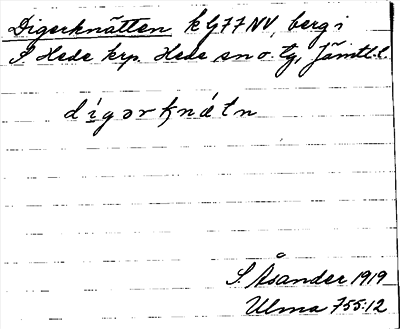 Digerknätten k G77NV, berg i
S Hede krp. Hede sn o. tg, Jämtl. l.
dígərknétn
S. Åsander 1919
Ulma 755:12